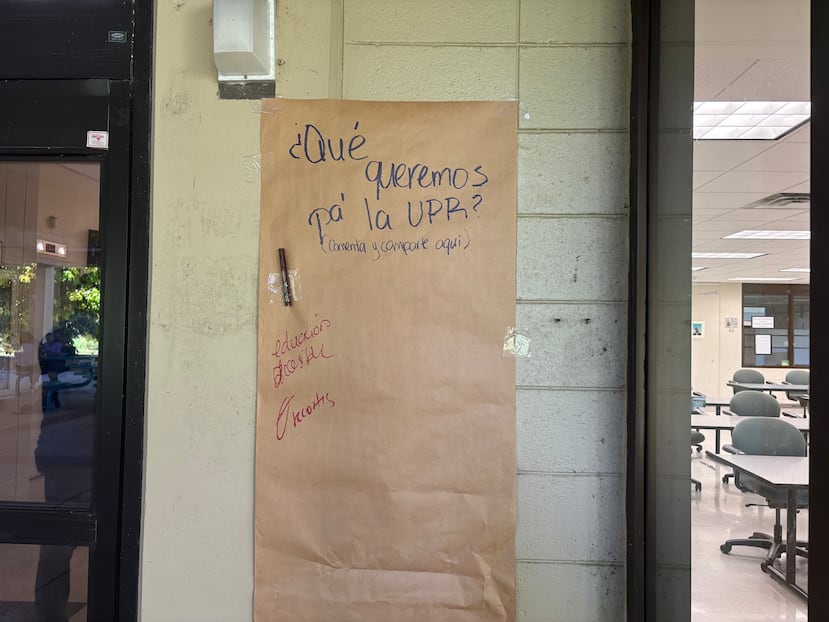 ¿Qué
queremos
pa' la UPR?
(comenta y comparte aquí)
educación
accesible
0 recortes